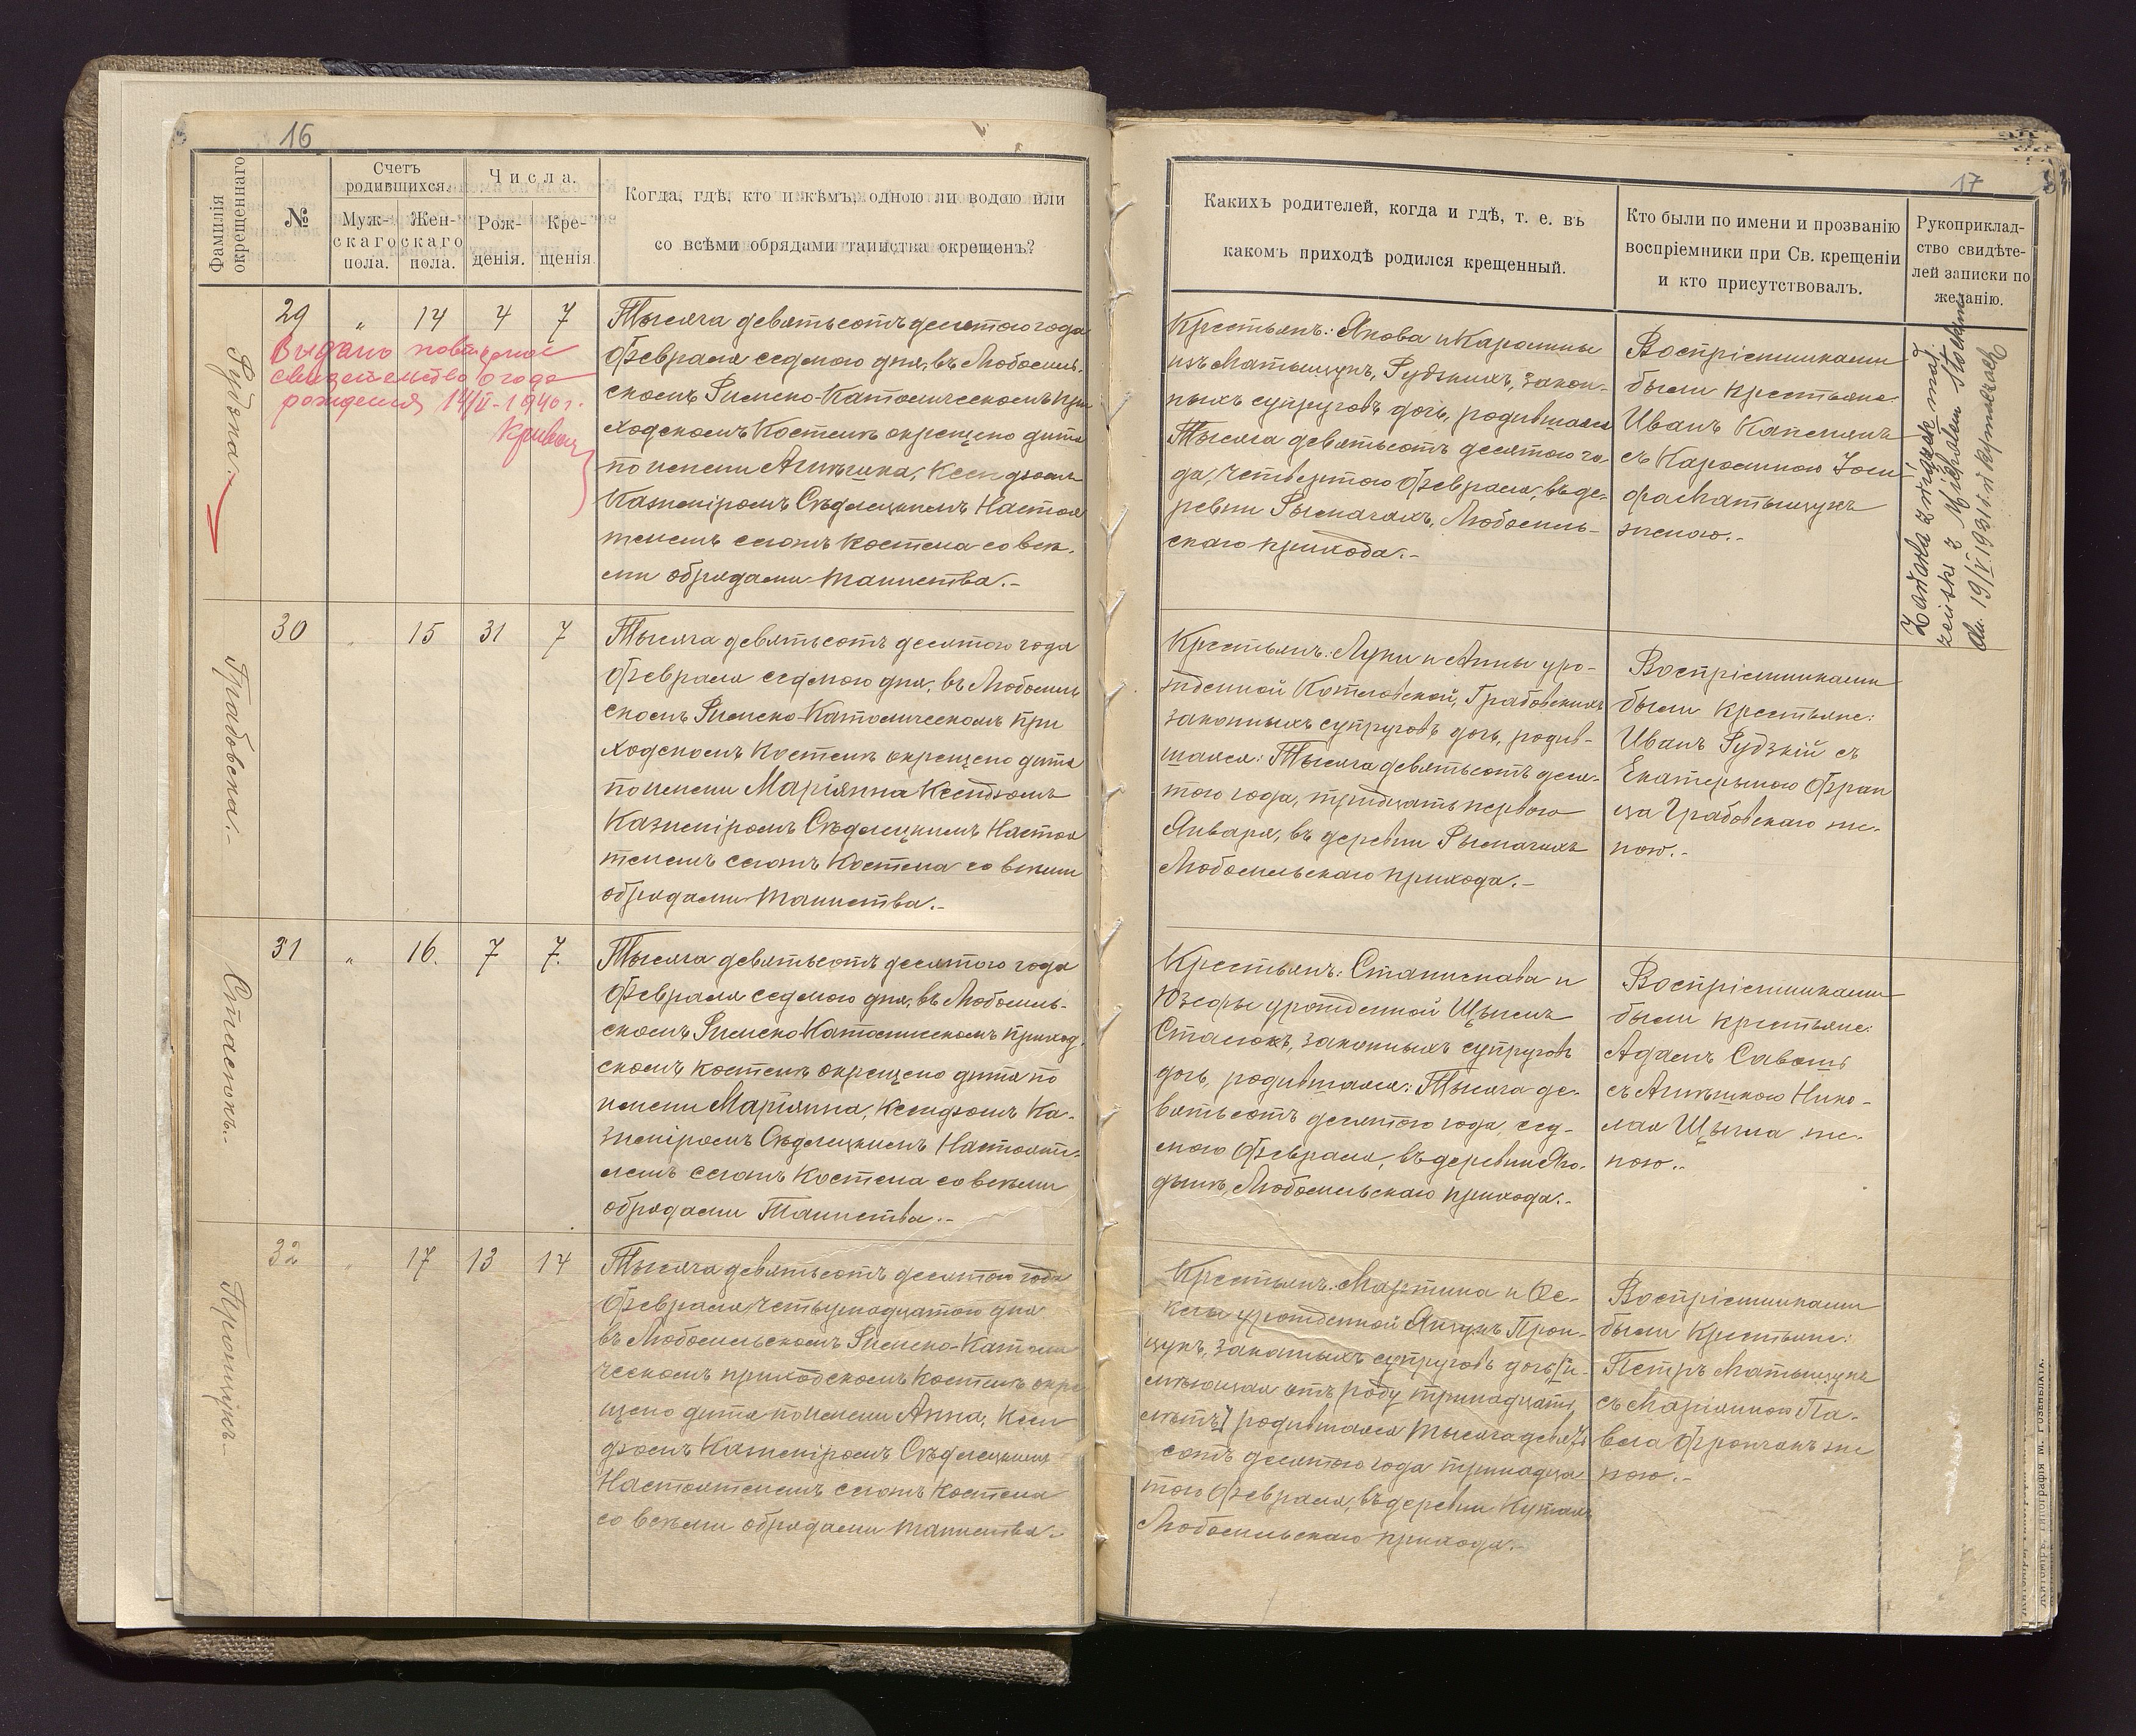 16
Фамилія окрещеннаго
№
Счетъ родившихся.
Мужскаго пола.
Женскаго пола.
Числа.
Рожденія.
Крещенія.
Когда, гдѣ, кто и кѣмъ, одною ли водою или
со всѣми обрядами таинства окрещенъ?
Рудзка.-
29 " 14 4 7
Выдано повторное
свидетельство о годе
рождения 14/II-1940 г.
Тысяча девятьсотъ десятого года
Февраля седмого дня, въ Любомль-
скомъ Римско-Католическомъ при
ходскомъ Костелѣ окрещено дитя
по имени Агнѣшка, Ксендзомъ
Казиміромъ Сѣдлецкимъ Настоя
телемъ сегожъ костела со всѣ-
ми обрядами таинства.-
Грабовска.-
30 " 15 31 7
Тысяча девятьсотъ десятого года
Февраля седмого дня, въ Любомль
скомъ Римско-Католическомъ при
ходскомъ Костелѣ окрещено дитя
по имени Маріянна Ксендзомъ
Казиміромъ Сѣдлецкимъ Настоя
телемъ сегожъ Костела со всѣми
обрядами таинства.-
Стасюкъ.-
31 " 16. 7 7.
Тысяча девятьсотъ десятого года
Февраля седмого дня, въ Любомль-
скомъ Римско Католическомъ приход-
скомъ костелѣ окрещено дитя по
имени Маріянна, Ксендзомъ Ка-
зиміромъ Сѣдлецкимъ Настояте-
лемъ сегожъ Костела со всѣми
обрядами Таинства.-
Пронцукъ.-
32 " 17 13 14
Тысяча девятьсотъ десятого года
Февраля четырнадцатого дня
въ Любомльскомъ Римско-Католи
ческомъ приходскомъ костелѣ окре
щено дитя по имени Анна, Ксен
дзомъ Казиміромъ Сѣдлецкимъ
Настоятелемъ сегожъ костела
со всѣми обрядами таинства.-
17
Какихъ родителей, когда и гдѣ, т. е. въ
какомъ приходѣ родился крещенный.
Кто были по имени и прозванію
воспріемники при Св. крещеніи
и кто присутствовалъ.
Рукоприклад-
ство свидѣте-
лей записки по
желанію.
Крестьянъ: Якова и Каролины
изъ Матыщукъ, Рудзкихъ, закон-
ныхъ супруговъ дочь, родившаяся
Тысяча девятьсотъ десятого го-
да, четвертого Февраля, въ де-
ревни Рымачахъ, Любомль-
скаго прихода.-
Воспріемниками
были крестьяне:
Иванъ
съ Каролиною Іоси
фа Матыщукъ
женою.-
Zawarła związek mał
żeński z Michałem
dn. 19/V.1931 r. w Rymaczach
Крестьянъ: Луки и Анны уро-
жденной Котловской, Грабовскихъ
законныхъ супруговъ дочь, родив-
шаяся: Тысяча девятьсотъ деся-
того года, тридцать первого
Января, въ деревни Рымачахъ
Любомльскаго прихода.-
Воспріемниками
были крестьяне:
Иванъ Рудзкій съ
Екатерыною Фран
ца Грабовскаго же-
ною.-
Крестьянъ: Станислава и
Юзефы урожденной Щысмъ
Стасюкъ, законныхъ супруговъ
дочь, родившаяся: Тысяча де-
вятьсотъ десятого года, сед-
мого Февраля, въ деревни Яго-
дынѣ, Любомльскаго прихода.-
Воспріемниками
были крестьяне:
Адамъ
съ Агнѣшкою Нико-
лая же-
ною.-
Крестьянъ: Мартина и Ѳе-
клы урожденной Яхцукъ Прон-
цукъ, законныхъ супруговъ дочь [и-
мѣющая отъ роду тринадцать
лѣтъ] родившаяся Тысяча девять
сотъ десятого года тринадца
того Февраля, въ деревни Кутахъ
Любомльскаго прихода.-
Воспріемниками
были Крестьяне:
Петръ Матыщукъ
съ Маріянною Па-
вла же
ною.-